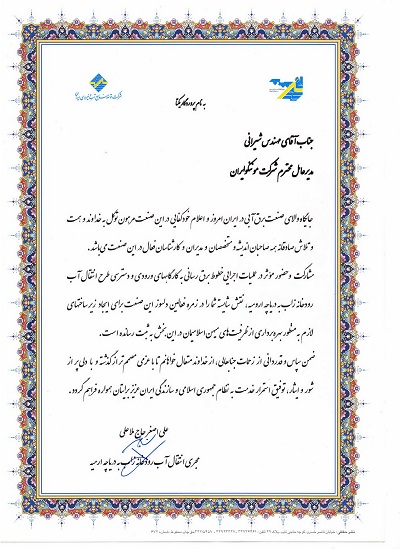 به نام پروردگار یکتا
جناب آقای مهندس شیرانی
مدیرعامل محترم شرکت مونکوایران
جایگاه والای صنعت برق آبی در ایران امروز و اعلام خودکفایی در این صنعت مرهون توکل به خداوند و همت
و تلاش صادقانه همه صاحبان اندیشه و متخصصان و مدیران و کارشناسان فعال در این صنعت می‌باشد.
مشارکت و حضور موثر در عملیات اجرایی خطوط برق رسانی به کارگاههای ورودی و دسترسی طرح انتقال آب
رودخانه زاب به دریاچه ارومیه، نقش شایسته شما را در زمره فعالین دلسوز این صنعت برای ایجاد زیرساختهای
لازم به منظور بهره‌برداری از ظرفیت‌های میهن اسلامیمان در این بخش به ثبت رسانده است.
ضمن سپاس و قدردانی از زحمات جنابعالی، از خداوند متعال خواهانم تا با عزمی مصمم‌تر از گذشته و با دلی پر از
شور و ایثار، توفیق استمرار خدمت به نظام جمهوری اسلامی و سازندگی ایران عزیز برایتان همواره فراهم گردد.
علی اصغر حاج ملاعلی
مجری انتقال آب رودخانه زاب به دریاچه ارومیه